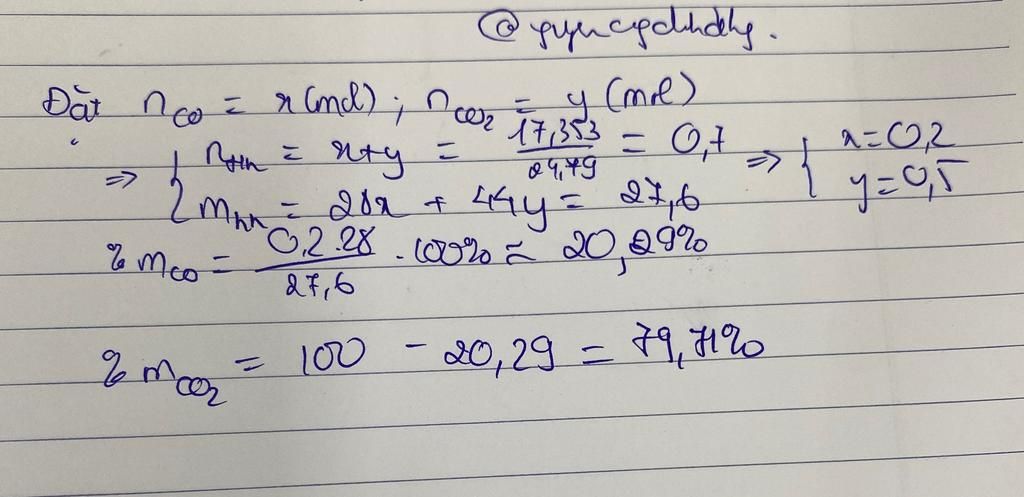 Đặt n_CO = x (mol) ; n_CO2 = y (mol)
=> { n_hh = x+y = 17,353 / 24,79 = 0,7 => { x=0,2
m_hh = 28x + 44y = 27,6 y=0,5
% m_CO = 0,2.28 / 27,6 . 100% = 20,29%
% m_CO2 = 100 - 20,29 = 79,71%